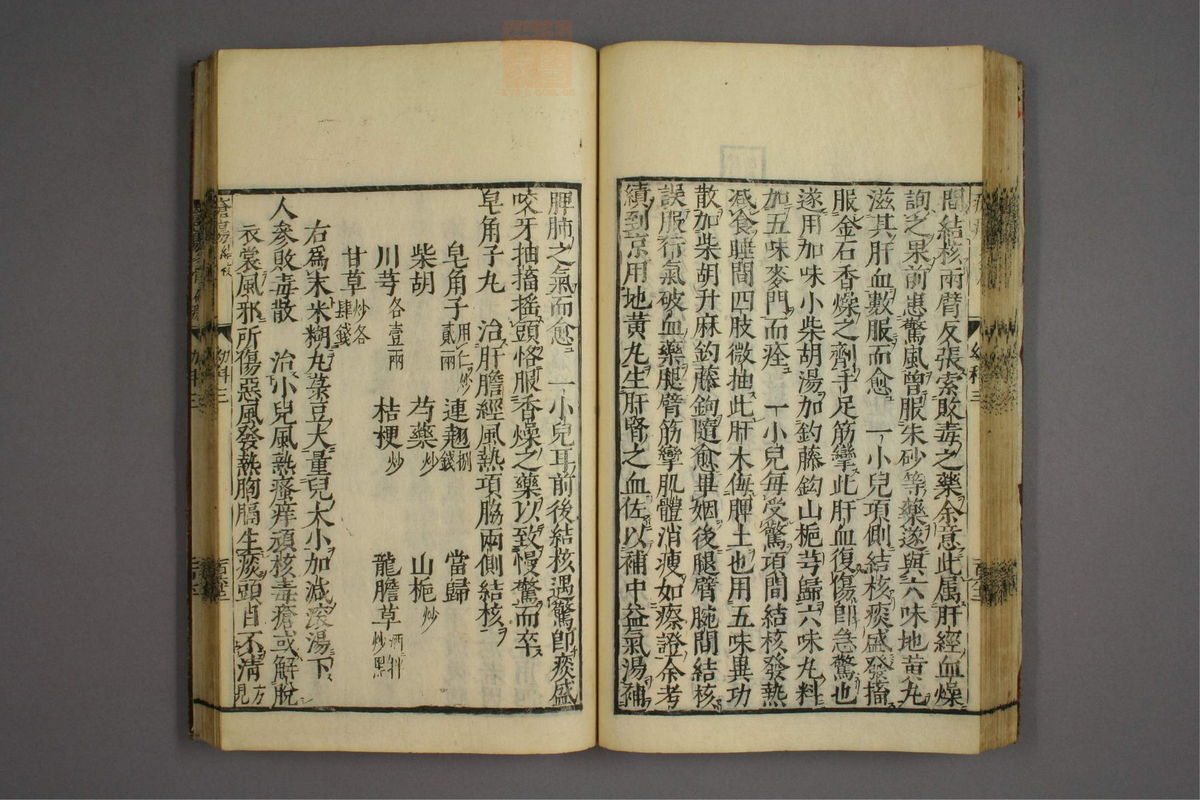 間結核兩臂反張索敗毒之藥余意此属肝經血燥
詢之果前患驚風曾服朱砂等藥遂與六味地黄丸
滋其肝血數服而愈 一小兒項側結核痰盛發搐
服金石香燥之劑手足筋攣此肝血復傷卽急驚也
遂用加味小柴胡湯加鈎藤鈎山梔芎歸六味丸料
加五味麥門而痊 一小兒每受驚項間結核發熱
减食睡間四肢微抽此肝木侮脾土也用五味異功
散加柴胡升麻鈎藤鉤隨愈畢姻後腿臂腕間結核
誤服行氣破血藥腿臂筋攣肌體消痩如瘵證余考
績到京用地黄丸生肝腎之血佐以補中益氣湯補
脾肺之氣而愈 一小兒耳前後結核遇驚卽痰盛
咬牙抽搐摇頭恪服香燥之藥以致慢驚而卒
皂角子丸 治肝膽經風熱項脇兩側結核
皂角子用仁炒貳兩 連翹捌錢 當歸
柴胡 芍藥炒 山梔炒
川芎各壹兩 桔梗炒 龍膽草酒拌炒黑
甘草炒各肆錢
右爲末米糊丸菉豆大量兒大小加减滚湯下
人參敗毒散 治小兒風熱瘙痒頑核毒瘡或解脫
衣裳風邪所傷惡風發熱胸膈生痰頭目不淸方見